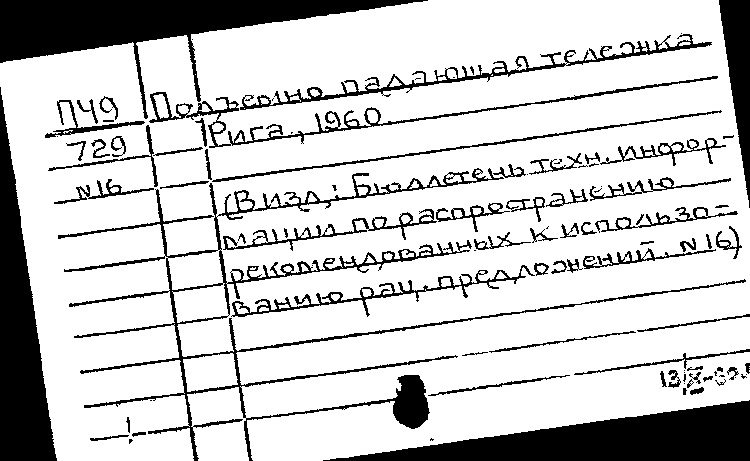 П49 Подъемно падающая тележка
729 Рига, 1960
N16
(В изд.: Бюллетень техн. инфор-
мации по распространению
рекомендованных к использо-
ванию рац. предложений. N16)